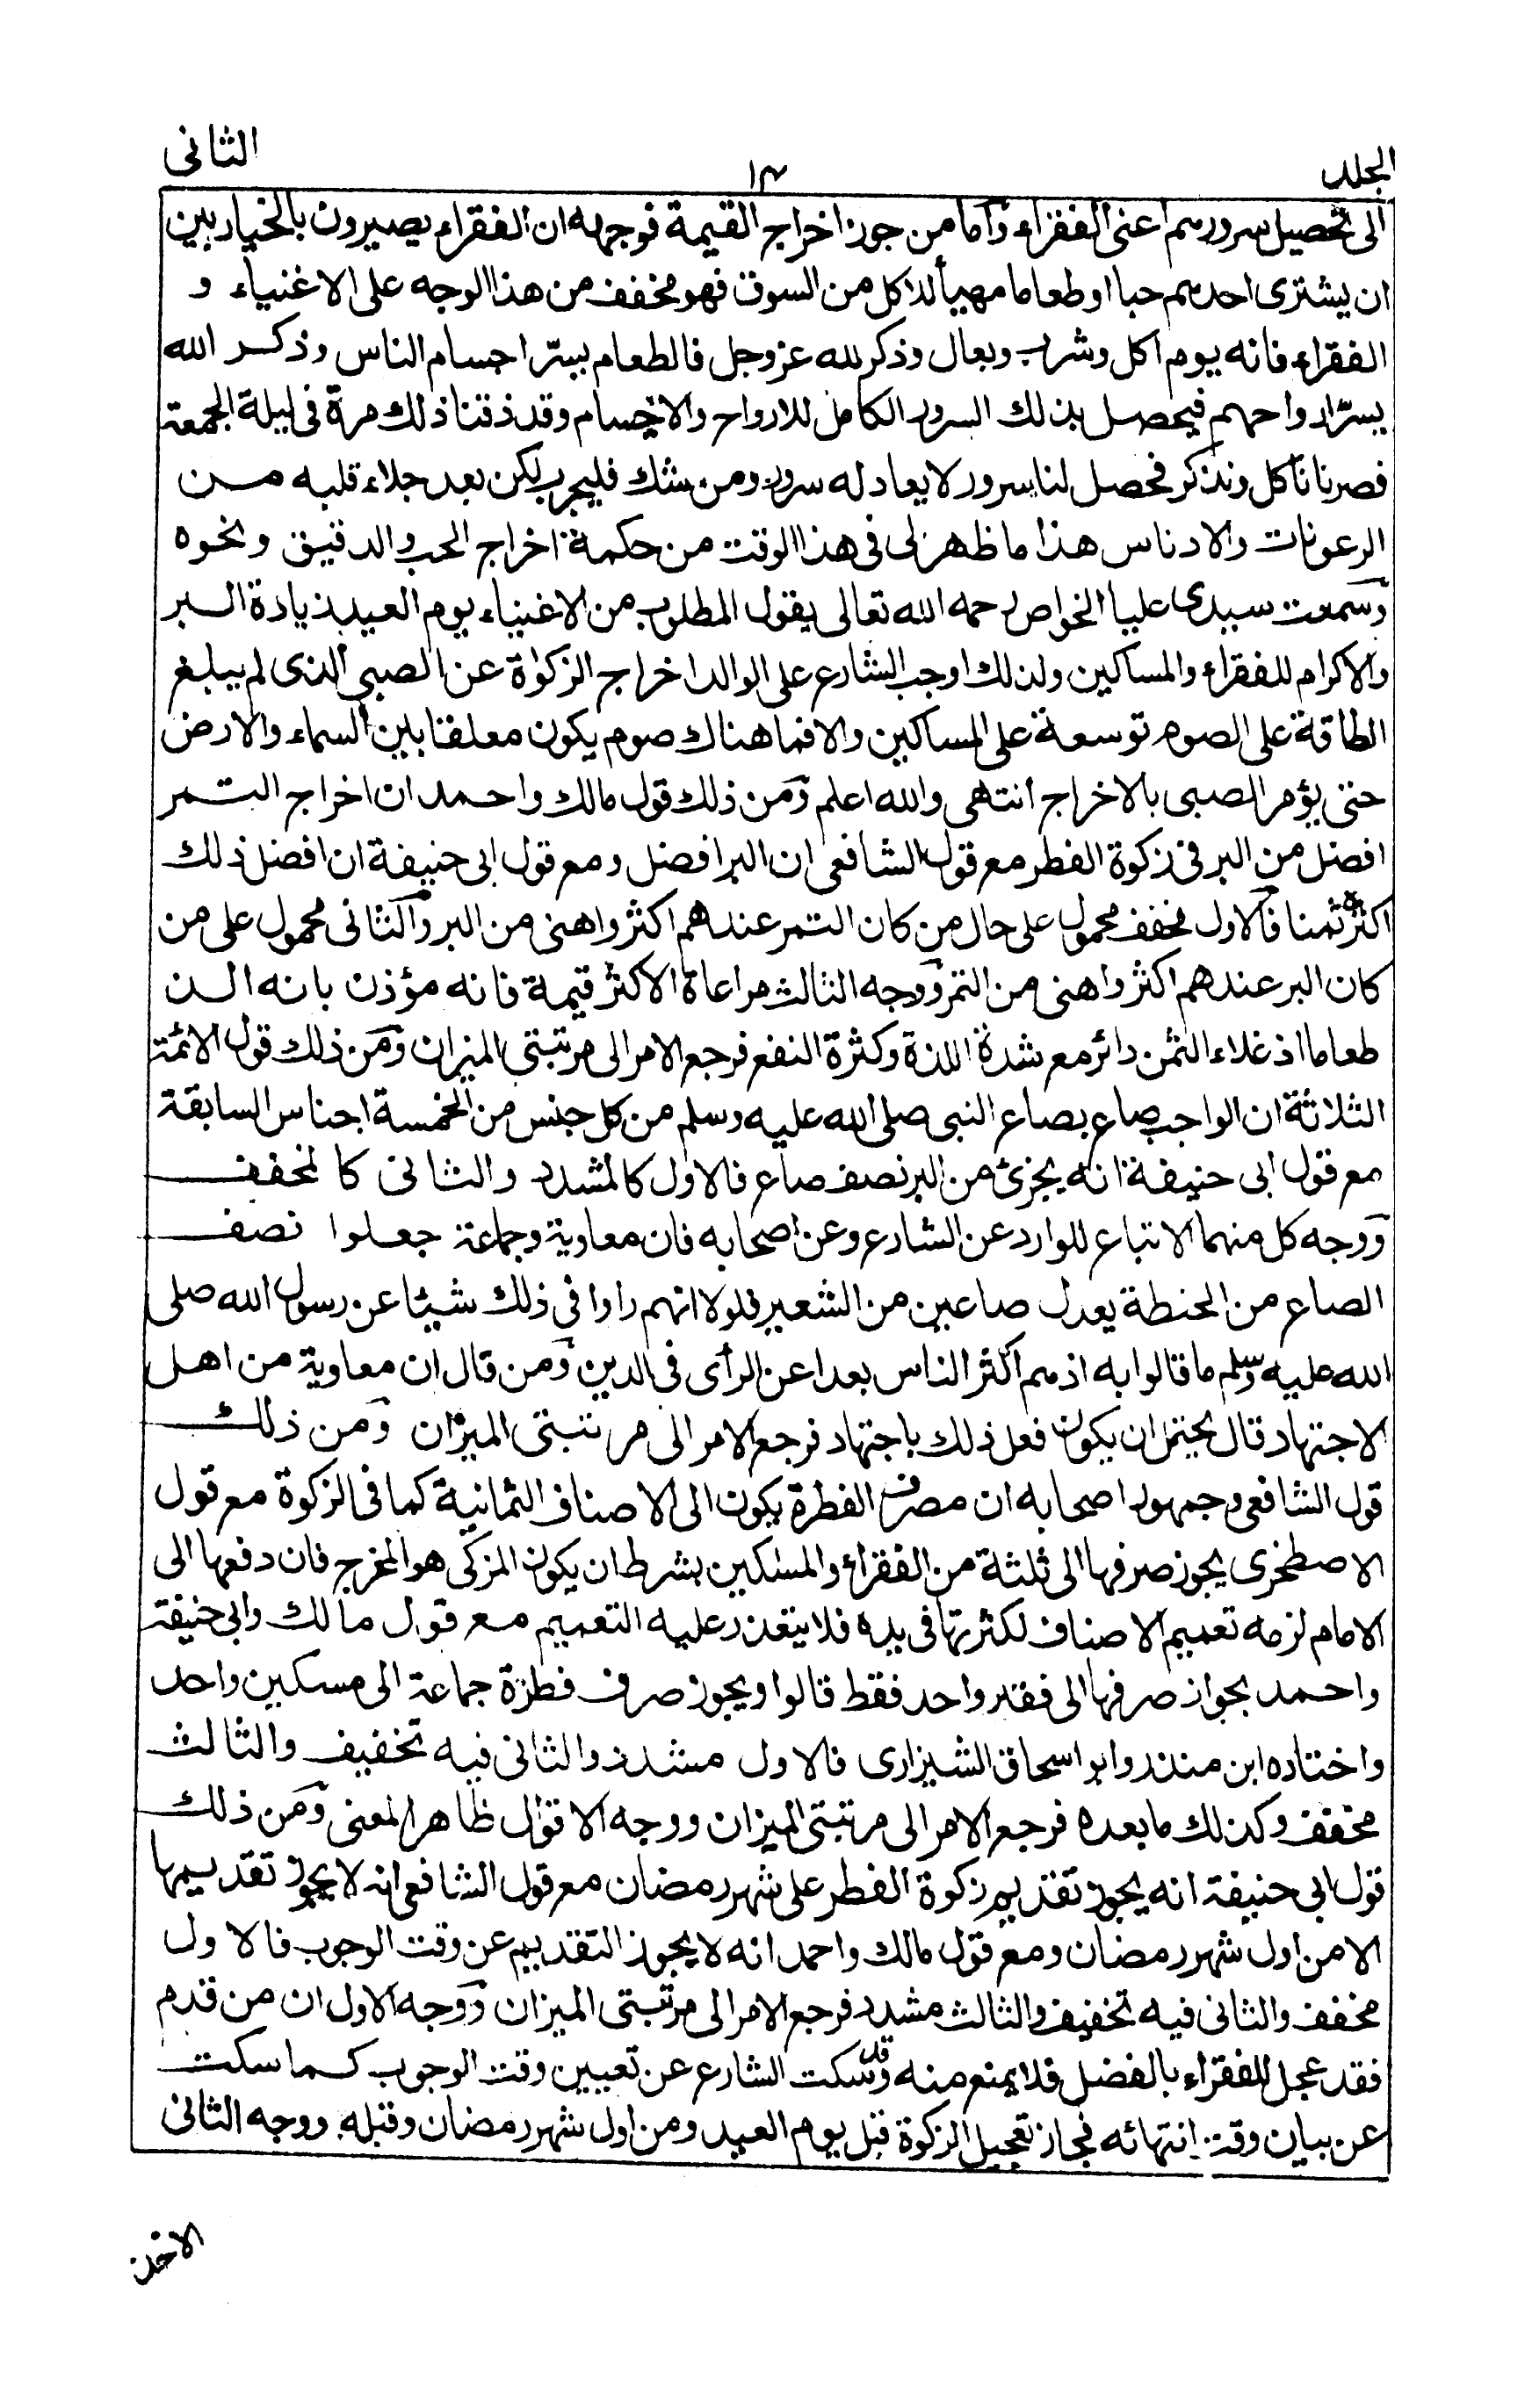 الجلد ١٣ الثانى
الى تحصيل سرورهم اعنى الفقراء واما من جوز اخراج القيمة فوجهه ان الفقراء يصيرون بالخيار بين
ان يشترى احدهم حبا او طعاما مهيأ للاكل من السوق فهو مخفف من هذا الوجه على الاغنياء و
الفقراء فانه يوم اكل وشرب وبعال وذكر لله عز وجل فالطعام يسرّ اجسام الناس وذكر الله
يسرّ ارواحهم فيحصل بذلك السرور الكامل للارواح والاجسام وقد ذقنا ذلك مرة فى ليلة الجمعة
فصرنا نأكل ونذكر فحصل لنا سرور لا يعادله سرور ومن شك فليجرب لكن بعد جلاء قلبه من
الرعونات والادناس هذا ما ظهر لى فى هذا الوقت من حكمة اخراج الحب والدقيق ونحوه
وسمعت سيدى عليا الخواص رحمه الله تعالى يقول المطلوب من الاغنياء يوم العيد زيادة البر
والاكرام للفقراء والمساكين ولذلك اوجب الشارع على الوالد اخراج الزكوٰة عن الصبى الذى لم يبلغ
الطاقة على الصوم توسعة على المساكين والا فما هناك صوم يكون معلقا بين السماء والارض
حتى يؤمر الصبى بالاخراج انتهى والله اعلم ومن ذلك قول مالك واحمد ان اخراج التمر
افضل من البر فى زكوة الفطر مع قول الشافعى ان البر افضل ومع قول ابى حنيفة ان افضل ذلك
اكثره ثمنا فالاول مخفف محمول على حال من كان التمر عندهم اكثر واهنى من البر والثانى محمول على من
كان البر عندهم اكثر واهنى من التمر ووجه الثالث مراعاة الاكثر قيمة فانه مؤذن بانه الذ
طعاما اذ غلاء الثمن دائر مع شدة اللذة وكثرة النفع فرجع الامر الى مرتبتى الميزان ومن ذلك قول الائمة
الثلاثة ان الواجب صاع بصاع النبى صلى الله عليه وسلم من كل جنس من الخمسة اجناس السابقة
مع قول ابى حنيفة انه يجزئ من البر نصف صاع فالاول كالمشدد والثانى كالمخفف
ووجه كل منهما الاتباع للوارد عن الشارع وعن اصحابه فان معاوية وجماعة جعلوا نصف
الصاع من الحنطة يعدل صاعين من الشعير فلولا انهم راوا فى ذلك شيئا عن رسول الله صلى
الله عليه وسلم ما قالوا به اذ هم اكثر الناس بعدا عن الرأى فى الدين ومن قال ان معاوية من اهل
الاجتهاد قال يحتمل ان يكون فعل ذلك باجتهاد فرجع الامر الى مرتبتى الميزان ومن ذلك
قول الشافعى وجمهور اصحابه ان مصرف الفطرة يكون الى الاصناف الثمانية كما فى الزكوة مع قول
الاصطخرى يجوز صرفها الى ثلثة من الفقراء والمسٰكين بشرط ان يكون المزكى هو المخرج فان دفعها الى
الامام لزمه تعميم الاصناف لكثرتها فى يده فلا يتعذر عليه التعميم مع قول مالك وابى حنيفة
واحمد بجواز صرفها الى فقير واحد فقط قالوا ويجوز صرف فطرة جماعة الى مسكين واحد
واختاره ابن منذر وابو اسحاق الشيزارى فالاول مشدد والثانى فيه تخفيف والثالث
مخفف وكذلك ما بعده فرجع الامر الى مرتبتى الميزان ووجه الاقوال ظاهر المعنى ومن ذلك
قول ابى حنيفة انه يجوز تقديم زكوة الفطر على شهر رمضان مع قول الشافعى انه لا يجوز تقديمها
الا من اول شهر رمضان ومع قول مالك واحمد انه لا يجوز التقديم عن وقت الوجوب فالاول
مخفف والثانى فيه تخفيف والثالث مشدد فرجع الامر الى مرتبتى الميزان ووجه الاول ان من قدم
فقد عجل للفقراء بالفضل فلا يمنع منه وقد سكت الشارع عن تعيين وقت الوجوب كما سكت
عن بيان وقت انتهائه فجاز تعجيل الزكوة قبل يوم العيد ومن اول شهر رمضان وقبله ووجه الثانى
الاخذ